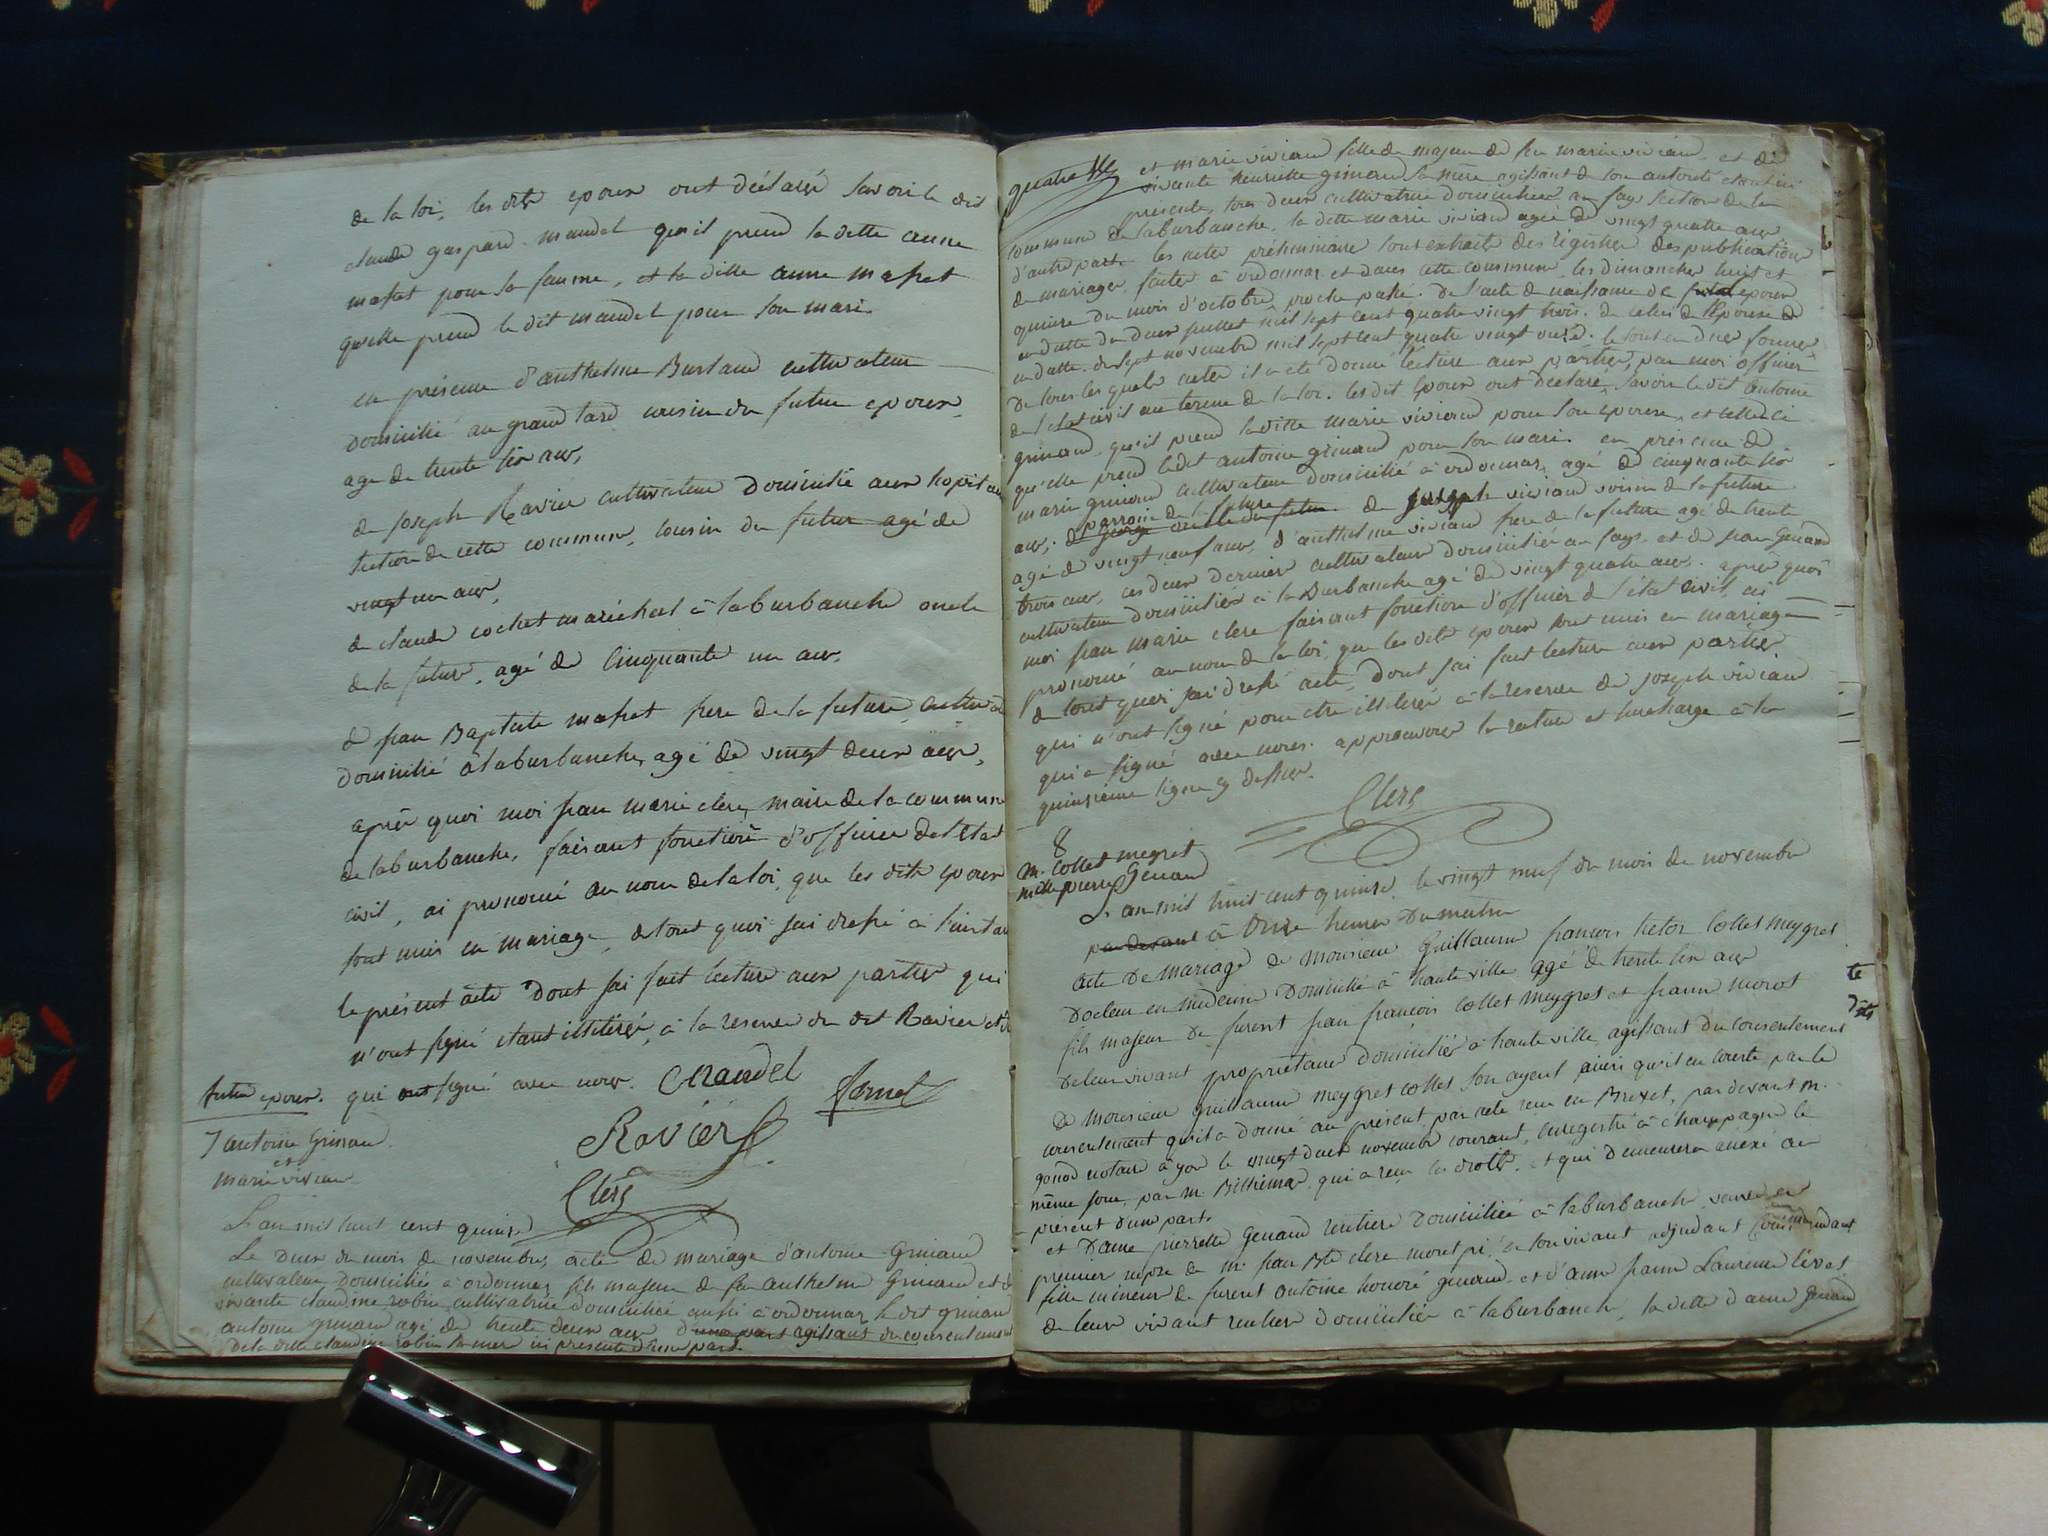 de la loi, les dits epoux ont déclaré savoir le dit
claude gaspard mandel qu'il prend la ditte anne
masset pour sa famme, et la ditte anne masset
quelle prend le dit mandel pour son mari.
en présence d'anthelme Burland cultivateur
domicilié au grand tard cousin du futur epoux,
agé de trente six ans,
de joseph Ravier cultivateur domicilié aux hopitau
section de cette commune, cousin du futur agé de
vingt un ans,
de claude cochet maréchal à laburbanche oncle
de la future, agé de Cinquante un ans,
de jean Baptiste masset frere de la future, cultiva
domicilié à laburbanche, agé de vingt deux ans,
après quoi moi jean marie clerc, maire de la commune
de laburbanche, faisant fonction d'officier de l'Etat
civil, ai prononcé au nom de la loi, que les dits epoux
sont unis en mariage, de tout quoi jai dressé à l'instan
le présent acte dont jai fait lecture aux parties qui
n'ont signé étant illitérés, à la reserve du dit Ravier et d
futur epoux. qui ont signé avec nous. Mandel
Ravier
Clerc
7 antoine Grinand
et
marie vivian
L'an mil huit cent quinze
Le deux du mois de novembre, acte de mariage d'antoine Grinand
cultivateur domicilié à ordonnaz, fils majeur de feu anthelme Grinand et de
vivante claudine robin cultivatrice domiciliée aussi à ordonnaz, le dit grinand
antoine grinand agé de trente deux ans d'une part agissant du consentement
de la ditte claudine robin sa mere ici presente d'une part.
quatre
et marie viviand fille majeure de feu marie viviand et de
vivante henriette grinand sa mère agissant de son autorité etant ici
présente, tous deux cultivatrices domiciliées au fays section de la
commune de laburbanche. la ditte marie viviand agée de vingt quatre ans
d'autre part. les actes préliminaires sont extraits des régistres des publications
de mariages, faites à ordonnaz et dans cette commune, les dimanches huit et
quinze du mois d'octobre, proche passé. de l'acte de naissance de futur epoux
en datte du deux juillet mil sept cent quatre vingt trois. de celui de l'épouse
en datte du sept novembre mil sept cent quatre vingt onze. le tout en due forme
de tous les quels actes il a été donné lecture aux parties, par moi officier
de l'etat civil au terme de la loi. les dits époux ont déclaré, savoir le dit antoine
grinand qu'il prend la ditte marie viviand pour son épouse, et celle ci
qu'elle prend le dit antoine grinand pour son mari. en présence de
marie grinand cultivateur domicilié à ordonnaz, agé de cinquante six
parroin de la future
ans, de joseph viviand voisin de la future
agé de vingt neuf ans, d'anthelme viviand frere de la future agé de trente
trois ans, ces deux derniers cultivateurs domiciliés au fays et de jean Genand
cultivateur domicilié à la Burbanche agé de vingt quatre ans. après quoi
moi jean marie clerc faisant fonction d'officier de l'état civil, ai
prononcé au nom de la loi, que les dits epoux sont unis en mariage
de tout quoi jai dressé acte, dont jai fait lecture aux parties,
qui n'ont signé pour etre illitérés à la reserve de joseph viviand
qui a signé avec nous. approuvons la rature et surcharge à la
quinzieme ligne cy dessus.
Clerc
8
M. Collet megret
Pierre Genand
L'an mil huit cent quinze, le vingt neuf du mois de novembre
par devant à Onze heures du matin
acte de mariage de monsieur Guillaume françois hetor Collet meygret
Docteur en médecine domicilié à haute ville agé de trente six ans
fils majeur de furent jean françois Collet meygret et jeanne morot
de leur vivant propriétaires domiciliés à haute ville, agissant du consentement
de monsieur guillaume meygret collet son ayeul, ainsi qu'il en conste par le
consentement qu'il a donné au présent, par acte reçu en Brevet, par devant m.
gonod notaire à yon le vingt deux novembre courant, enregistré à champagne le
même jour, par m. Billiemaz, qui a reçu les droits, et qui demeurera anexé au
présent d'une part.
et Dame pierrette Genand rentiere domiciliée à laburbanche, veuve en
premier nopce de m. jean Bte clerc de son vivant adjudant commandant
fille mineure de furent antoine honoré genand et d'anne jeanne Laurence
de leur vivant rentiers domiciliés à laburbanche, la ditte dame genand